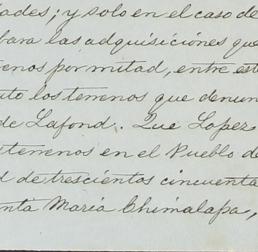 ades; y solo en el caso de
bara las adquisiciónes que
enos por mitad, entre est
uto los terrenos que denun
de Lafond. Que Lopez
terrenos en el Pueblo de
d de trescientos cincuenta
nta Maria Chimalapa,